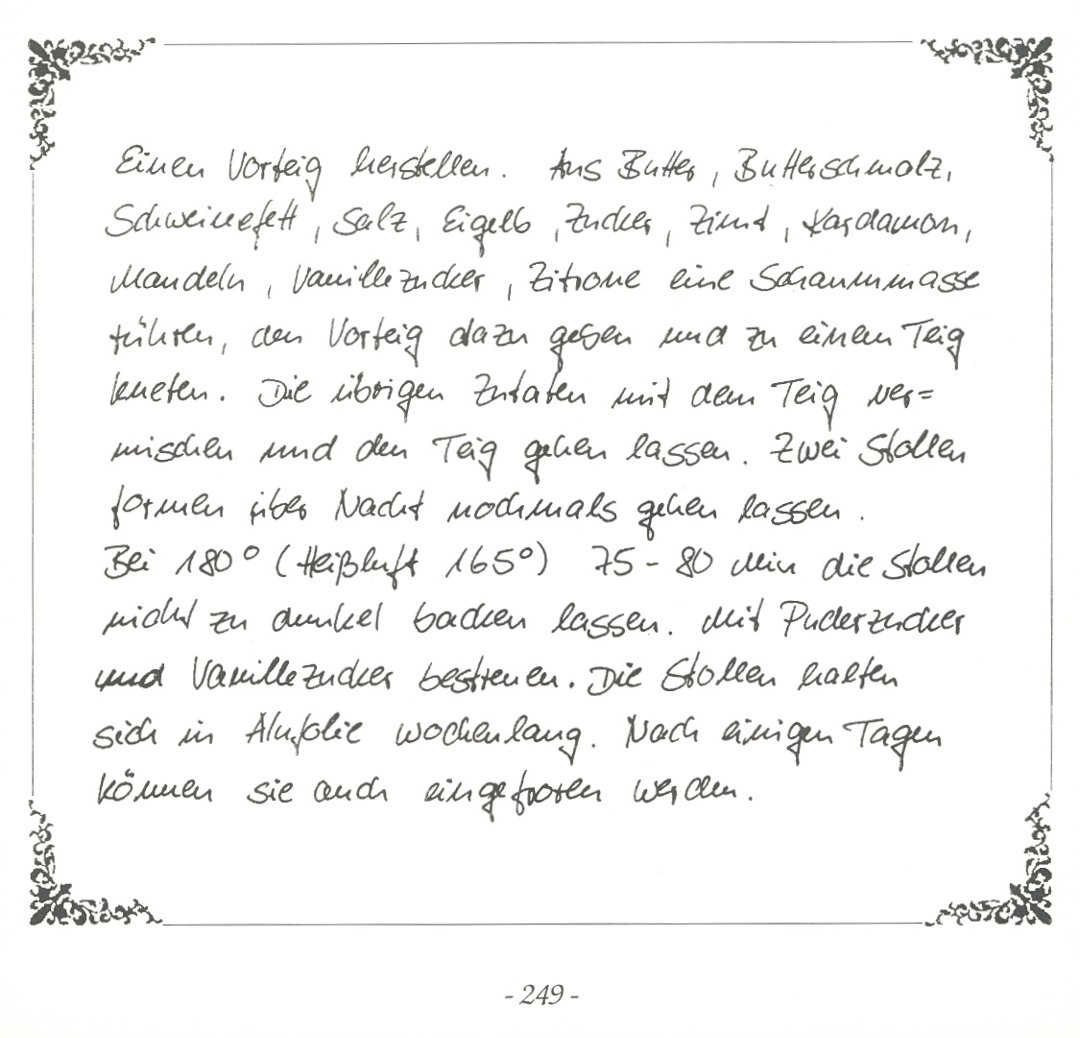 Einen Vorteig herstellen. Aus Butter, Butterschmalz,
Schweinefett, Salz, Eigelb, Zucker, Zimt, Kardamon,
Mandeln, Vanillezucker, Zitrone eine Schaummasse
rühren, den Vorteig dazu geben und zu einem Teig
kneten. Die übrigen Zutaten mit dem Teig ver=
mischen und den Teig gehen lassen. Zwei Stollen
formen über Nacht nochmals gehen lassen.
Bei 180° (Heißluft 165°) 75 - 80 Min die Stollen
nicht zu dunkel backen lassen. Mit Puderzucker
und Vanillezucker bestreuen. Die Stollen halten
sich in Alufolie wochenlang. Nach einigen Tagen
können sie auch eingefroren werden.
- 249 -